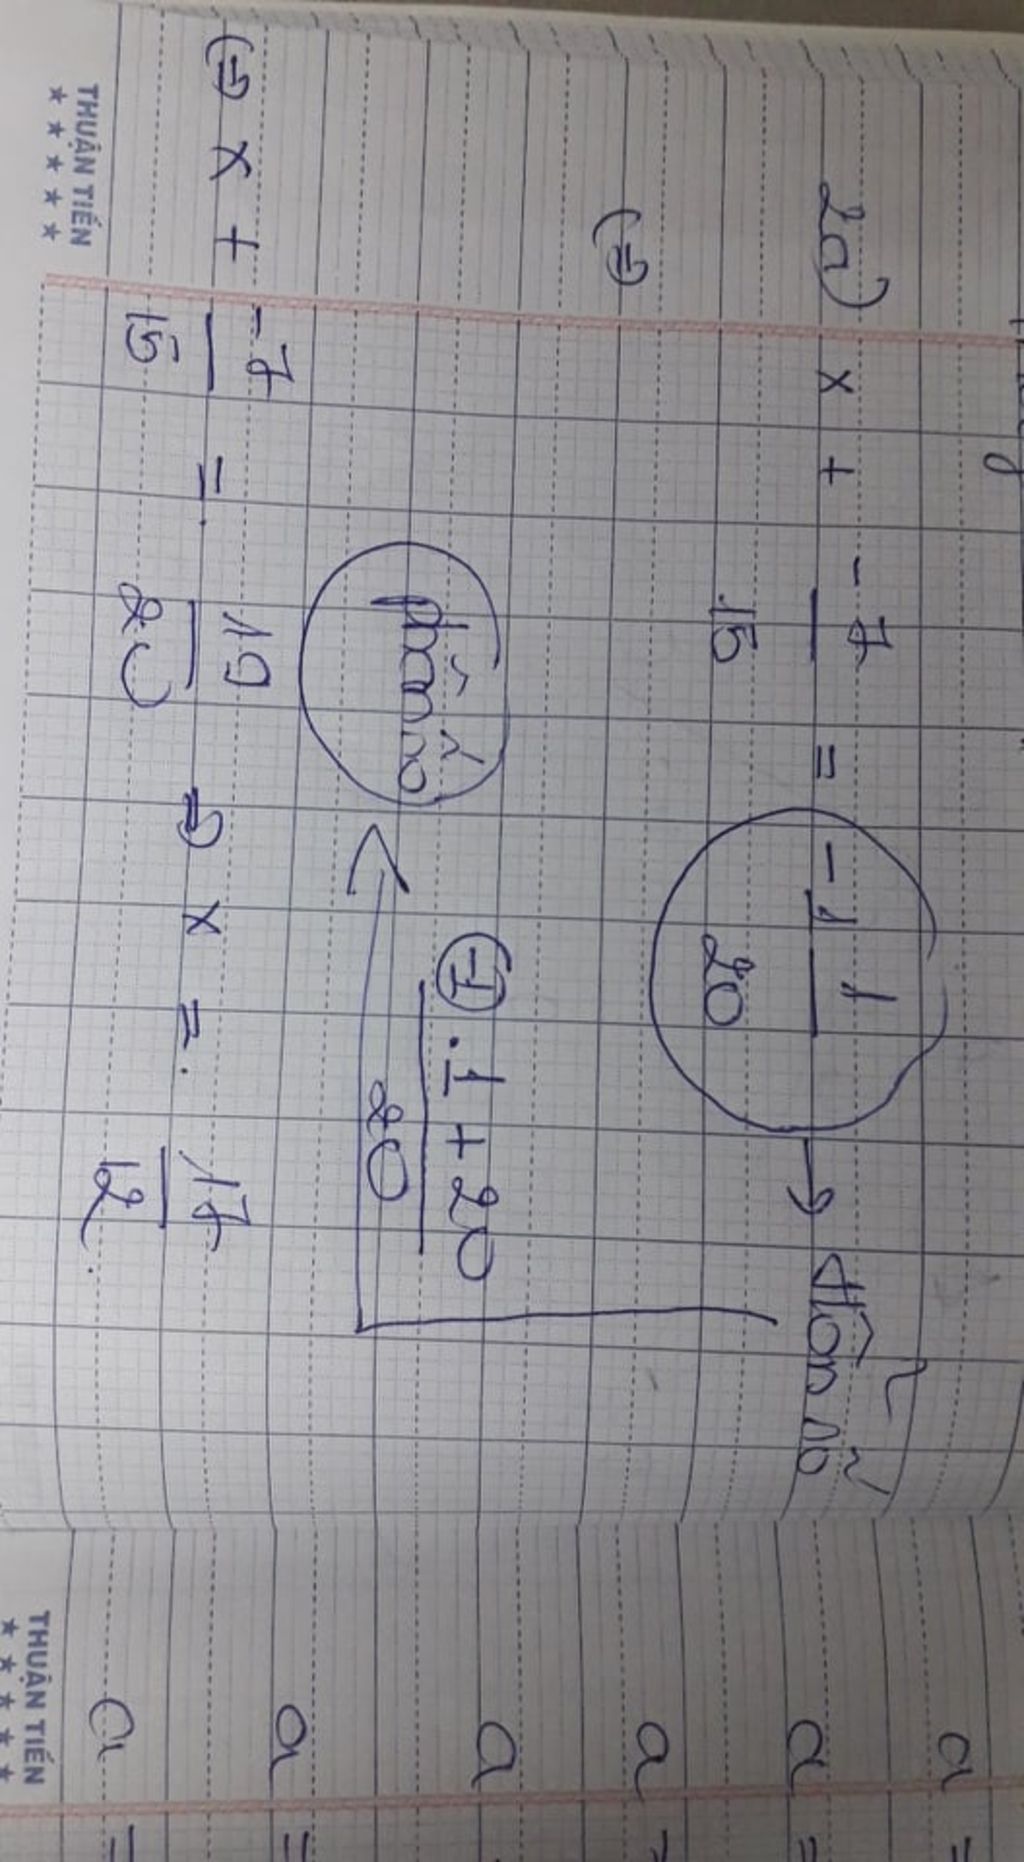 2a) x + -7/15 = -1 1/20 → hỗn số
(=)
(-1).1 + 20 / 20
phân số
(=) x + -7/15 = 19/20 => x = 17/12.
THUẬN TIẾN
★ ★ ★ ★ ★
a =
a =
a
a
a =
a =
THUẬN TIẾN
★ ★ ★ ★ ★